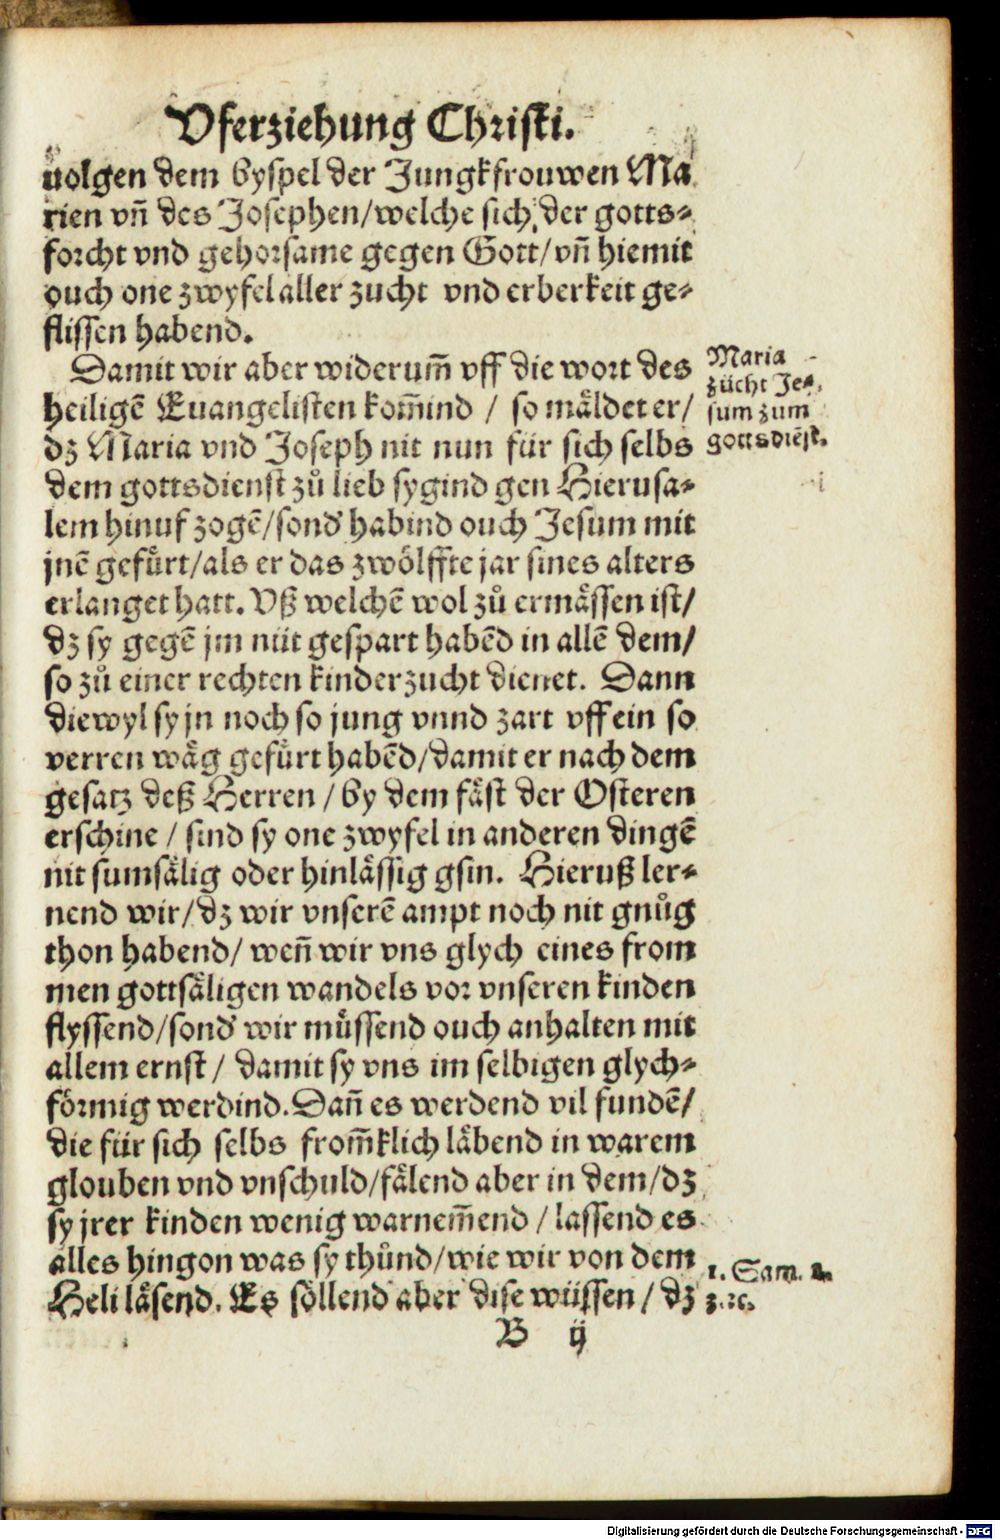 Vferziehung Christi.
uolgen dem byspel der Jungkfrouwen Ma
rien vñ des Josephen/welche sich der gotts⸗
forcht vnd gehorsame gegen Gott/vñ hiemit
ouch one zwyfel aller zucht vnd erberkeit ge⸗
flissen habend.
Damit wir aber widerum̃ vff die wort des
heiligẽ Euangelisten kom̃ind / so mäldet er/
dz Maria vnd Joseph nit nun für sich selbs
dem gottsdienst zů lieb sygind gen Hierusa⸗
lem hinuf zogẽ/sond' habind ouch Jesum mit
jnẽ gefürt/als er das zwölffte jar sines alters
erlanget hatt. Vß welchẽ wol zů ermässen ist/
dz sy gegẽ jm nüt gespart habẽd in allẽ dem/
so zů einer rechten kinderzucht dienet. Dann
diewyl sy jn noch so jung vnnd zart vff ein so
verren wäg gefürt habẽd/damit er nach dem
gesatz deß Herren / by dem fäst der Osteren
erschine / sind sy one zwyfel in anderen dingẽ
nit sumsälig oder hinlässig gsin. Hieruß ler⸗
nend wir/dz wir vnserẽ ampt noch nit gnůg
thon habend/ weñ wir vns glych eines from
men gottsäligen wandels vor vnseren kinden
flyssend/sond' wir müssend ouch anhalten mit
allem ernst / damit sy vns im selbigen glych⸗
förmig werdind. Dañ es werdend vil fundẽ/
die für sich selbs from̃klich läbend in warem
glouben vnd vnschuld/fälend aber in dem/dz
sy jrer kinden wenig warnem̃end / lassend es
alles hingon was sy thůnd/wie wir von dem
Heli läsend. Es söllend aber dise wüssen / dz
B ij
Maria
zücht Je⸗
sum zum
gottsdiẽst.
1. Sam. 2.
3. ꝛc.
Digitalisierung gefördert durch die Deutsche Forschungsgemeinschaft - DFG